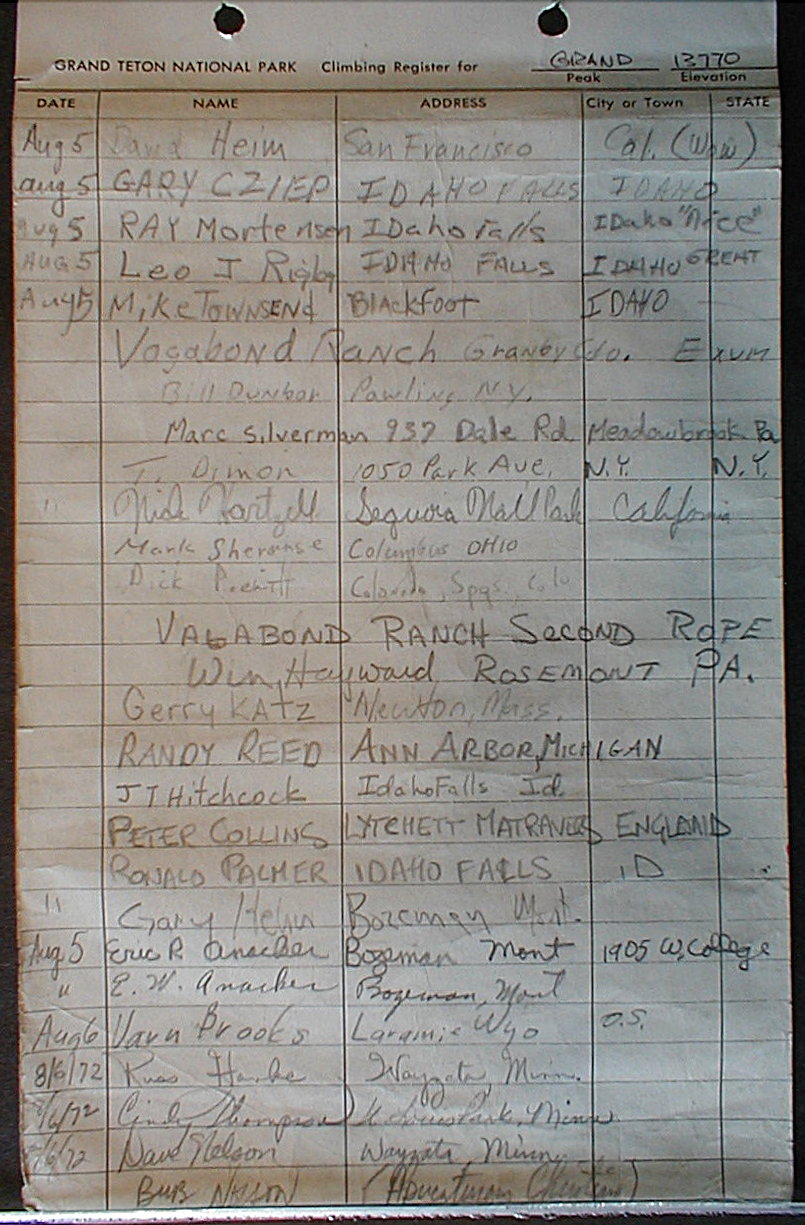 GRAND TETON NATIONAL PARK Climbing Register for GRAND 13770
Peak Elevation
DATE NAME ADDRESS City or Town STATE
Aug 5 David Heim San Francisco Cal. (Wow)
Aug 5 GARY CZIEP IDAHO FALLS IDAHO
Aug 5 RAY Mortensen IDaho Falls IDaho "Nice"
AUG 5 Leo J Rigby IDAHO FALLS IDAHO GREAT
Aug 5 Mike TOWNSENd BlAckfoot IDAHO
Vagabond Ranch Granby Colo. Exum
Bill Dunbar Pawling N.Y.
Marc Silverman 937 Dale Rd Meadowbrook Pa
T. Dimon 1050 Park Ave. N.Y. N.Y.
" Nick Hartzell Sequoia Natl Park California
Mark Columbus OHIO
Dick Colorado Spgs. Colo
VAGABOND RANCH SECOND ROPE
Win Hayward ROSEMONT PA.
Gerry KATZ Newton, Mass.
RANDY REED ANN ARBOR, MICHIGAN
J T Hitchcock Idaho Falls Id
PETER COLLINS LYTCHETT MATRAVERS ENGLAND
RONALD PALMER IDAHO FALLS ID
" Gary Bozeman Mont.
Aug 5 Eric R. Anacker Bozeman Mont 1905 W. College
" E. W. Anacker Bozeman, Mont
Aug 6 Varn Brooks Laramie Wyo O.S.
8/6/72 Russ Wayzata, Minn.
/6/72 Cindy Thompson Park, Minn.
/6/72 Dave Nelson Wayzata, Minn.
BUB NELSON (Adventurous Christians)